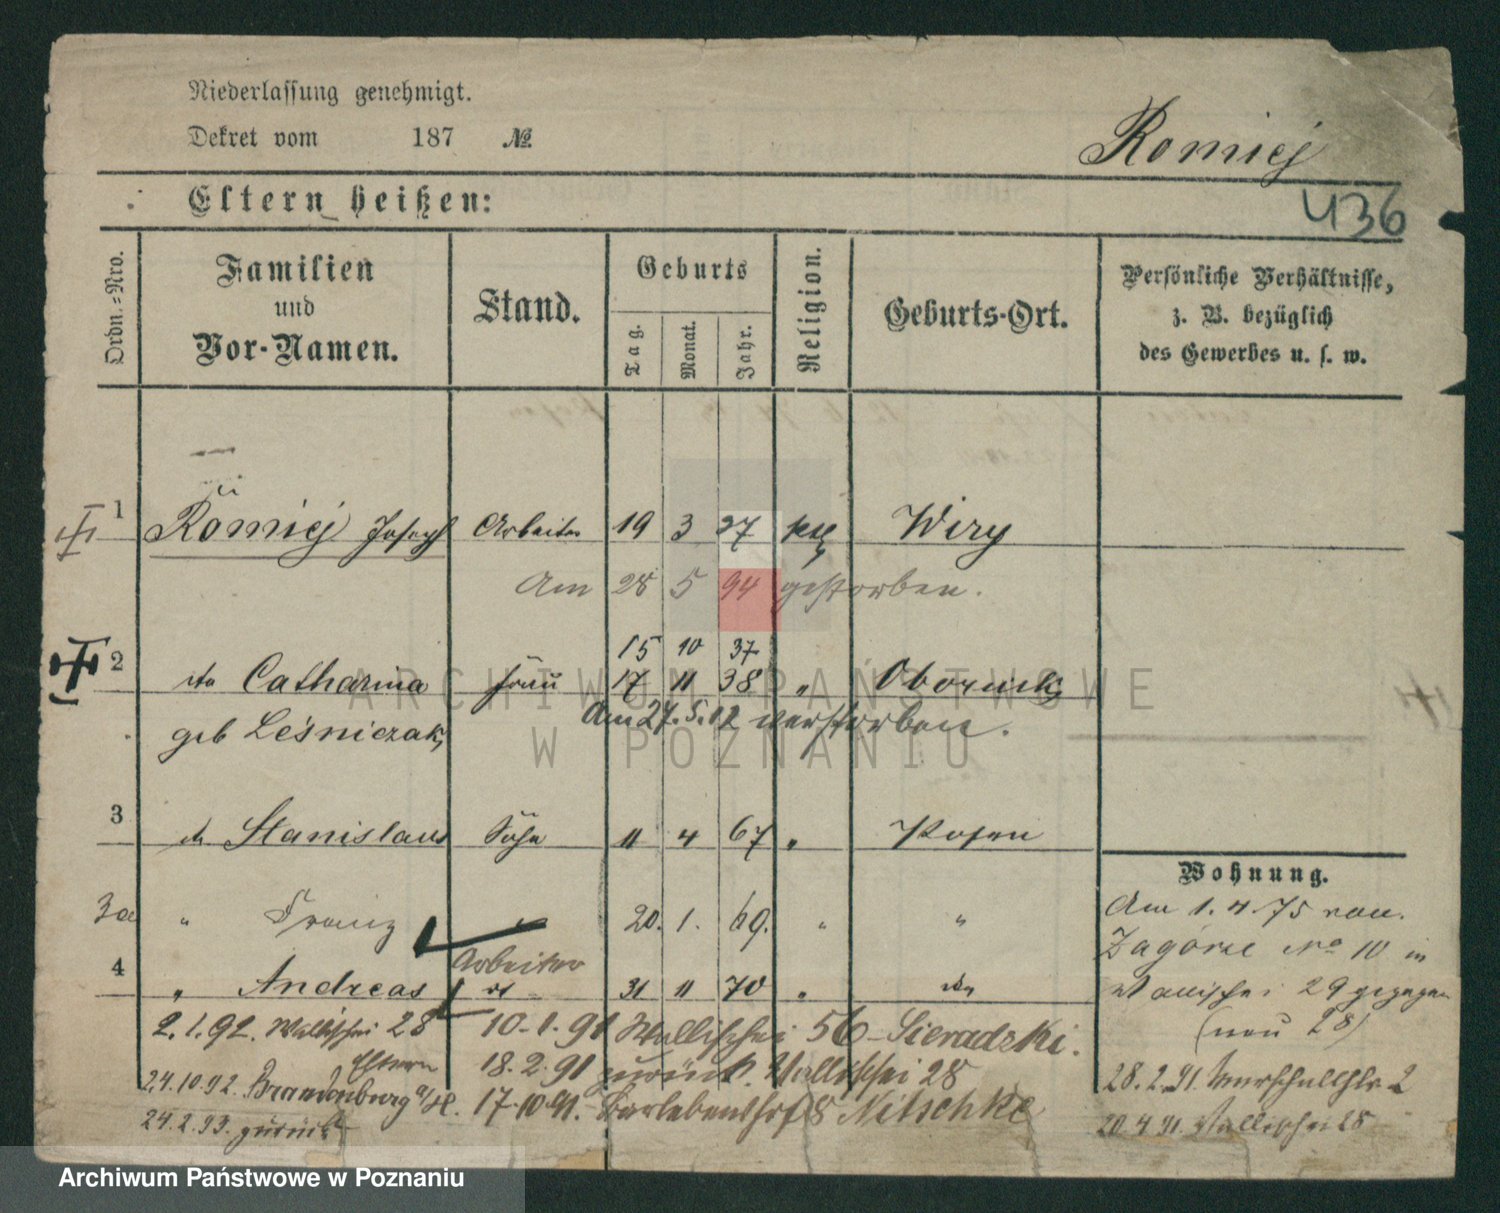 Niederlassung genehmigt.
Dekret vom 187 №
Romiej
Eltern heißen:
436
Ordn.-Nro.
Familien und Vor-Namen.
Stand.
Geburts
Tag.
Monat.
Jahr.
Religion.
Geburts-Ort.
Persönliche Verhältnisse, z. B. bezüglich des Gewerbes u. s. w.
1 Romiej Joseph Arbeiter 19 3 37 kth Wiry
Am 28 5 94 gestorben.
15 10 37
2 dto Catharina Frau 17 11 38 " Obornik
geb Leśniczak Am 27.5.12 verstorben.
3 do Stanislaus Sohn 11 4 67 " Posen
3a " Franz 20. 1. 69. " "
Arbeiter
4 " Andreas dt 31 11 70 " dto
Wohnung.
Am 1.4.75 von
Zagórze No 10 in
Wallischei 29 gezogen
(neu 28)
2.1.92. Wallischei 28
Eltern
24.10.92. Brandenburg a/H.
24.2.93. zurück
10.1.91 Wallischei 56 Sieradzki.
18.2.91 zurück. Wallischei 28
17.10.91. 8 Nitschke
28.2.91. 2
20.4.91. Wallischei 28
ARCHIWUM PAŃSTWOWE
W POZNANIU
Archiwum Państwowe w Poznaniu